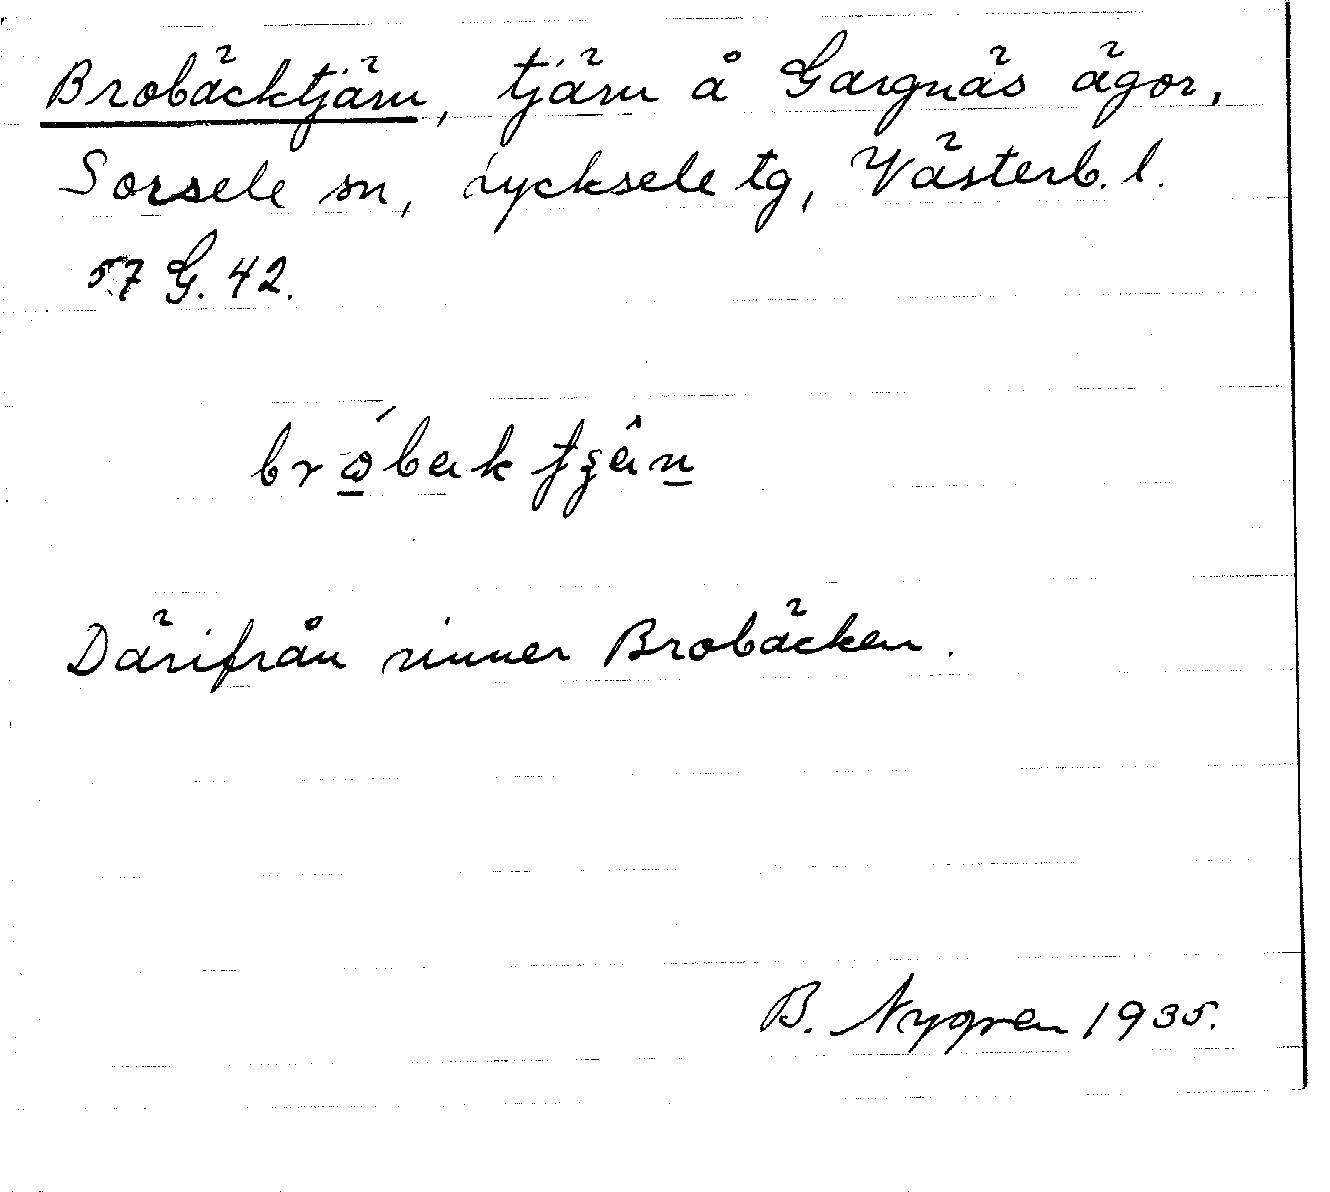 Brobäcktjärn, tjärn å Gargnäs ägor,
Sorsele sn, Lycksele tg, Västerb. l.
57 G. 42.
bró̠bak tjân̠
Därifrån rinner Brobäcken.
B. Nygren 1935.